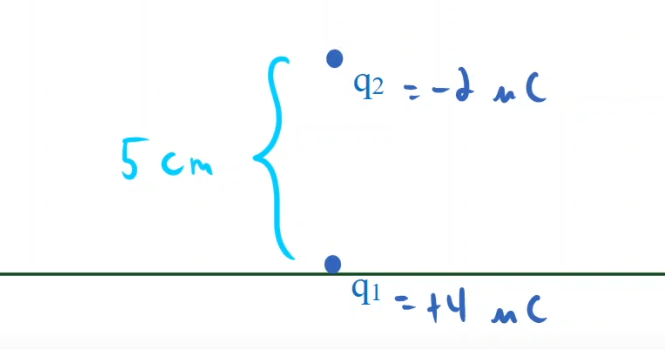 q2 = -2 nC
5 cm
q1 = +4 nC